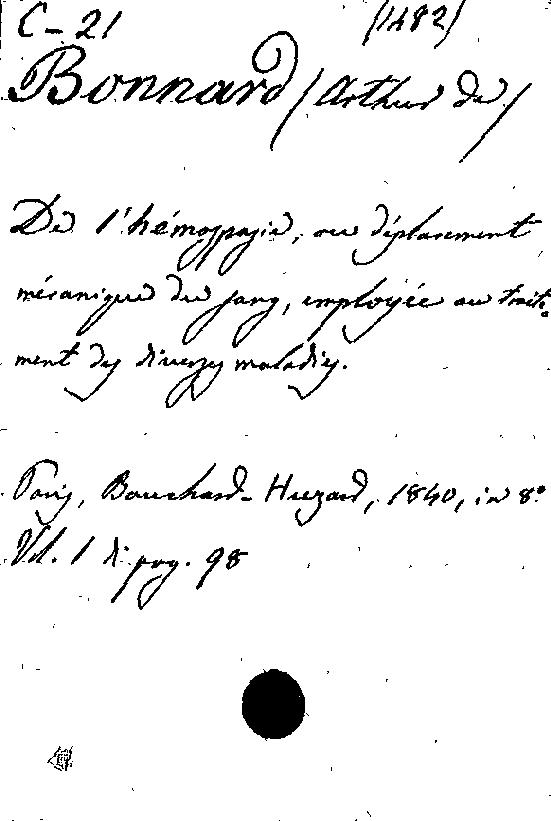 C-21 (1482)
Bonnard (Arthur de)
De l'hémospasie, ou déplacement
mécanique du sang, employée au traite-
ment des diverses maladies.
Paris, Bouchard-Huzard, 1840, in 8º
Vol. 1 di pag. 98